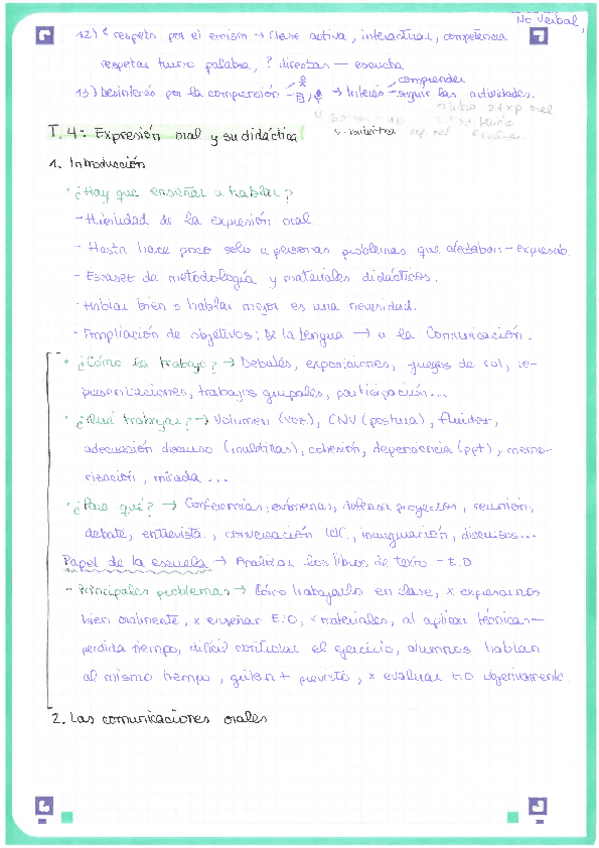 No Verbal,
12) < respeto por el emisor → Clase activa, interactuar, competencia
respetar turno palabra, ? directas — escucha
comprender
13) Desinterés por la comprensión → Interés — seguir las actividades.
T.4: Expresión oral y su didáctica
1. Introducción
· ¿Hay que enseñar a hablar?
- Haridad de la expresión oral.
- Hasta hace poco solo a personas problemas que afectaban — expresión.
- Escasez de metodología y materiales didácticos.
- Hablar bien o hablar mejor es una necesidad.
- Ampliación de objetivos: De la Lengua → a la Comunicación.
· ¿Cómo lo trabajo? → Debates, exposiciones, juegos de rol, re-
presentaciones, trabajos grupales, participación...
· ¿Qué trabajar? → Volumen (voz), CNV (postura), fluidez,
adecuación discurso (muletillas), cohesión, dependencia (ppt), memo-
rización, mirada...
· ¿Para qué? → Conferencias, exámenes, defensa proyectos, reunión,
debate, entrevista, conversación, inauguración, discursos...
Papel de la escuela → Analizar los libros de texto - E.O
- Principales problemas → Cómo trabajarlo en clase, x expresarnos
bien oralmente, x enseñar E.O, < materiales, al aplicar técnicas —
perdida tiempo, difícil controlar el ejercicio, alumnos hablan
al mismo tiempo, gritan + previsto, x evaluar E.O objetivamente.
2. Las comunicaciones orales